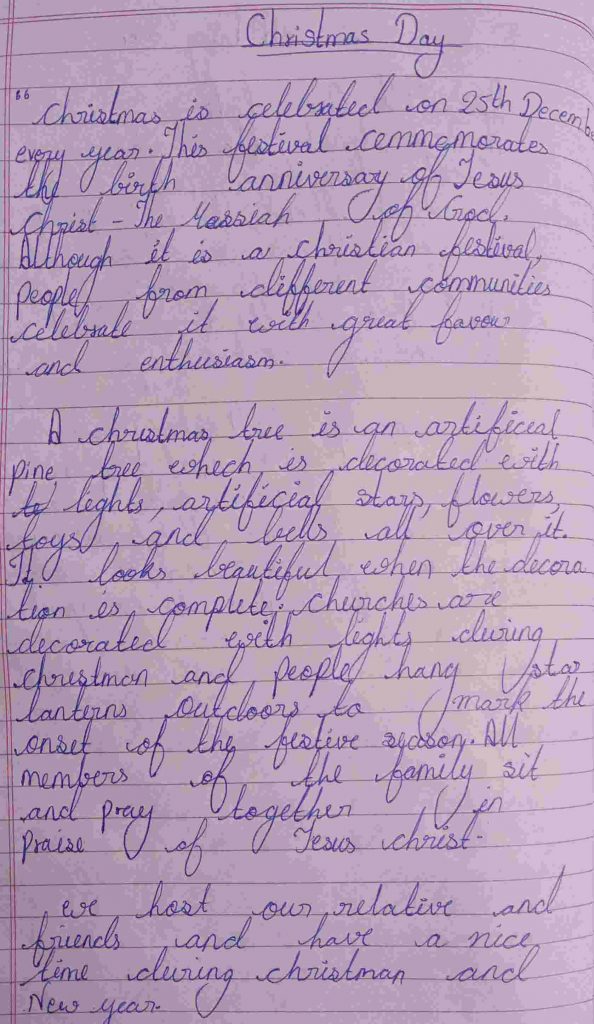 Christmas Day
“ Christmas is celebrated on 25th December
every year. This festival cemmemorates
the birth anniversary of Jesus
Christ - The Messiah of God.
Although it is a christian festival,
people from different communities
celebrate it with great favour
and enthusiasm.
A christmas tree is an artificial
pine tree which is decorated with
lights, artificial stars, flowers,
toys and bells all over it.
It looks beautiful when the decora
tion is complete. churches are
decorated with lights during
christman and people hang star
lanterns outdoors to mark the
onset of the festive season. All
members of the family sit
and pray together in
praise of Jesus christ.
we host our relative and
friends and have a nice
time during christman and
New year.